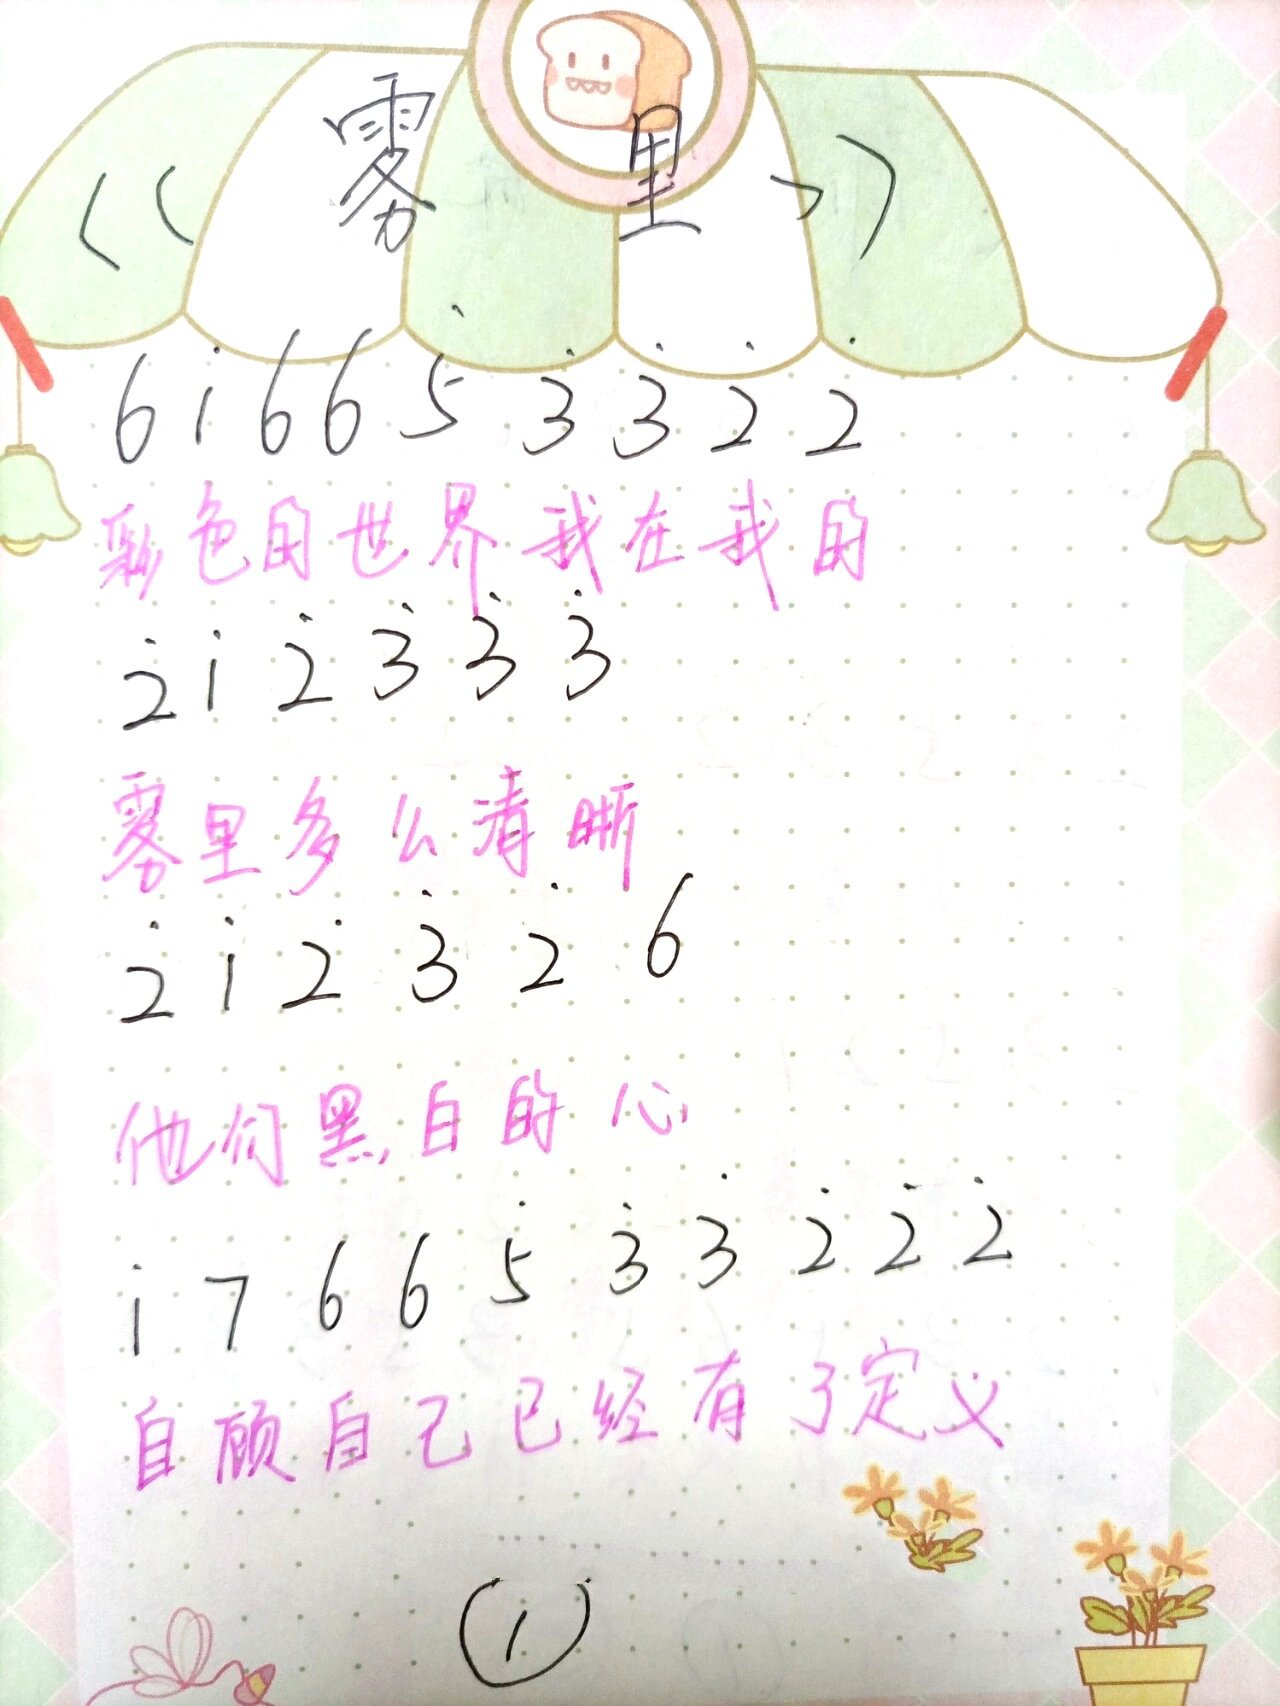 《雾里》
6 i 6 6 5̇ 3̇ 3̇ 2̇ 2̇
彩色的世界我在我的
2̇ i 2̇ 3̇ 3̇ 3̇
雾里多么清晰
2̇ i 2̇ 3̇ 2̇ 6
他们黑白的心
i 7 6 6 5̇ 3̇ 3̇ 2̇ 2̇ 2̇
自顾自己已经有了定义
①